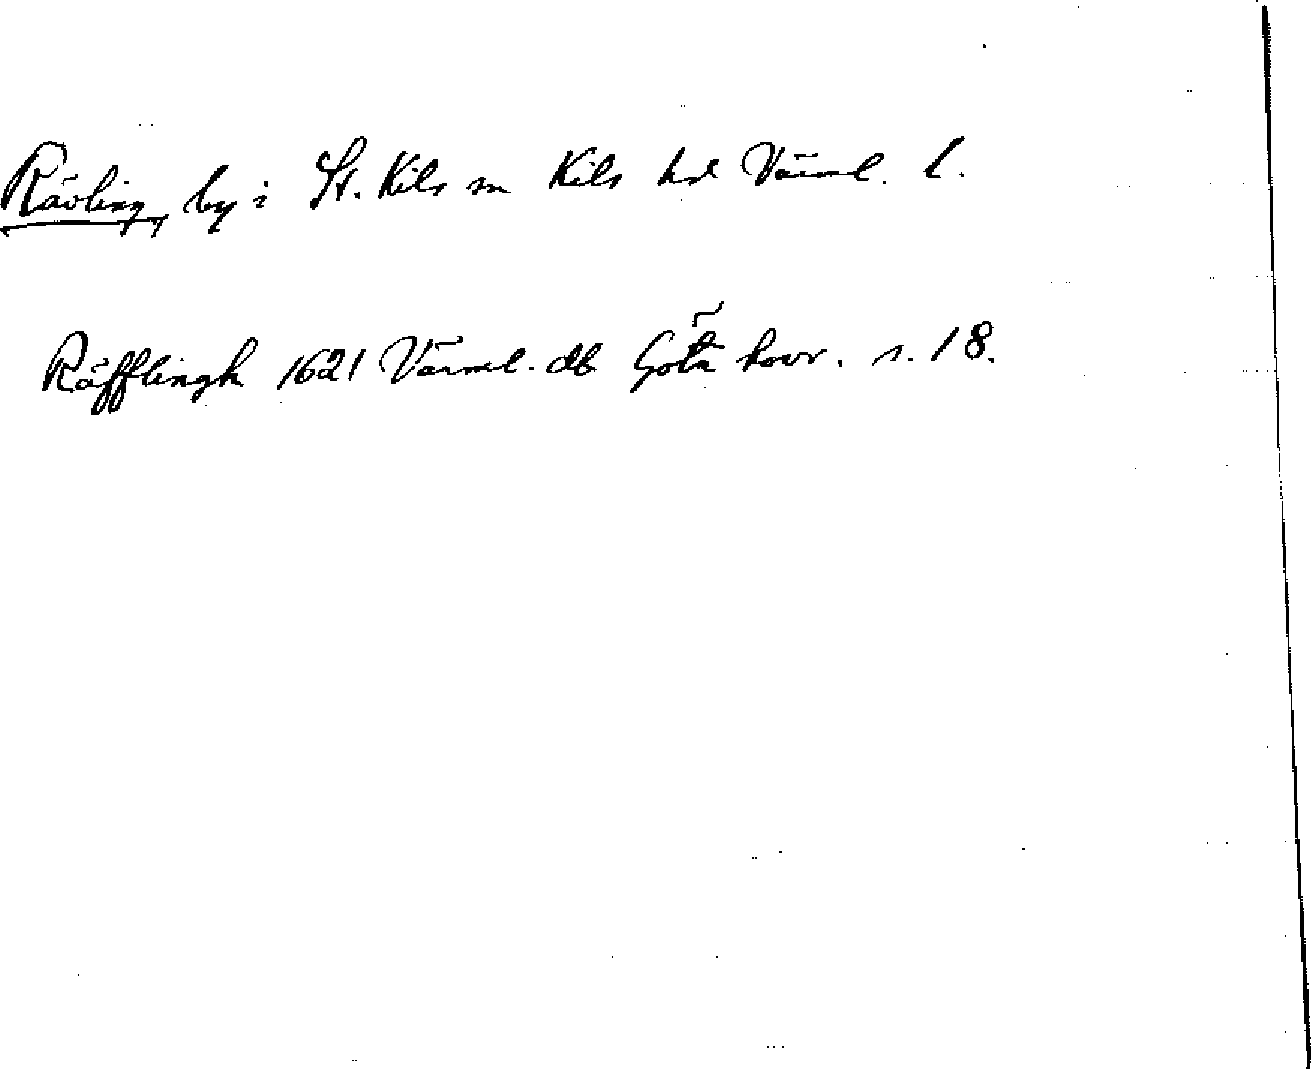 Rävling, by i St. Kils sn Kils hd Värml. l.
Räfflingh 1621 Värml. db Göta hovr. s. 18.